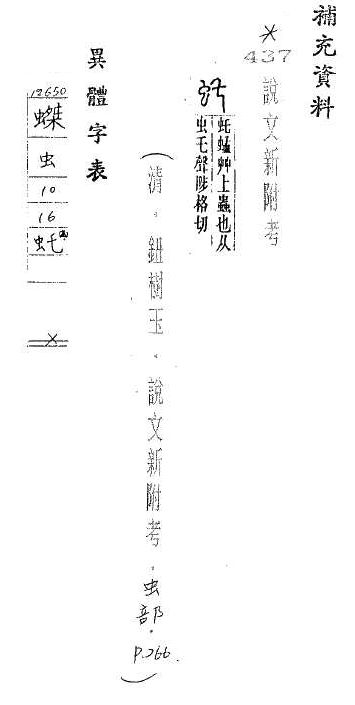 補充資料
*
437
說文新附考
虴蜢艸上蟲也从
虫乇聲陟格切
(清。鈕樹玉。說文新附考。虫部。P.266.)
異體字表
12650
蟍
虫
10
16
虴